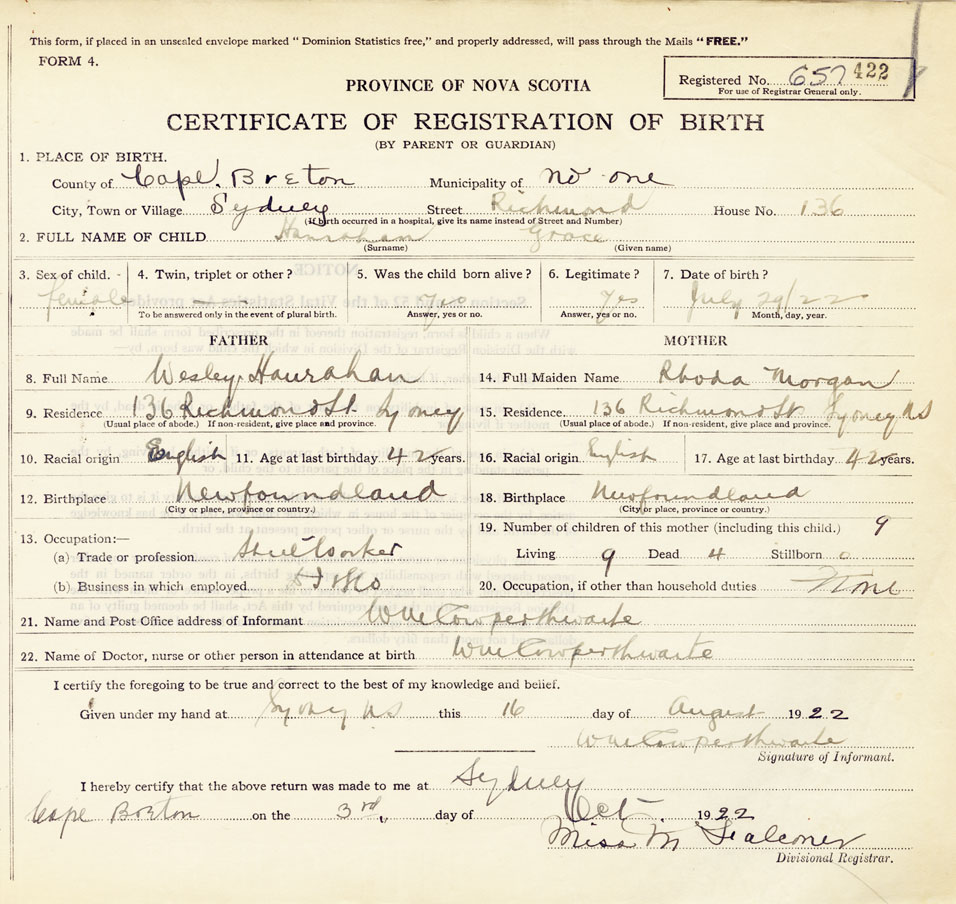 This form, if placed in an unsealed envelope marked "Dominion Statistics free," and properly addressed, will pass through the Mails "FREE."
FORM 4.
PROVINCE OF NOVA SCOTIA
Registered No. 657 422
For use of Registrar General only.
CERTIFICATE OF REGISTRATION OF BIRTH
(BY PARENT OR GUARDIAN)
1. PLACE OF BIRTH.
County of Cape Breton Municipality of No one
City, Town or Village Sydney Street Richmond House No. 136
(If birth occurred in a hospital, give its name instead of Street and Number)
2. FULL NAME OF CHILD Hanrahan Grace
(Surname) (Given name)
3. Sex of child. - 4. Twin, triplet or other? 5. Was the child born alive? 6. Legitimate? 7. Date of birth?
female Yes Yes July 29/22
To be answered only in the event of plural birth. Answer, yes or no. Answer, yes or no. Month, day, year.
FATHER MOTHER
8. Full Name Wesley Hanrahan 14. Full Maiden Name Rhoda Morgan
9. Residence 136 Richmond St. Sydney 15. Residence 136 Richmond St Sydney NS
(Usual place of abode.) If non-resident, give place and province. (Usual place of abode.) If non-resident, give place and province.
10. Racial origin English 11. Age at last birthday 42 years. 16. Racial origin English 17. Age at last birthday 42 years.
12. Birthplace Newfoundland 18. Birthplace Newfoundland
(City or place, province or country.) (City or place, province or country.)
19. Number of children of this mother (including this child.) 9
13. Occupation:—
(a) Trade or profession Steel Worker Living 9 Dead 4 Stillborn 0
(b) Business in which employed 20. Occupation, if other than household duties None
21. Name and Post Office address of Informant Wm Cowperthwaite
22. Name of Doctor, nurse or other person in attendance at birth Wm Cowperthwaite
I certify the foregoing to be true and correct to the best of my knowledge and belief.
Given under my hand at Sydney NS this 16 day of August 1922
Wm Cowperthwaite
Signature of Informant.
I hereby certify that the above return was made to me at Sydney
Cape Breton on the 3rd day of Oct. 1922
Miss M Falconer
Divisional Registrar.